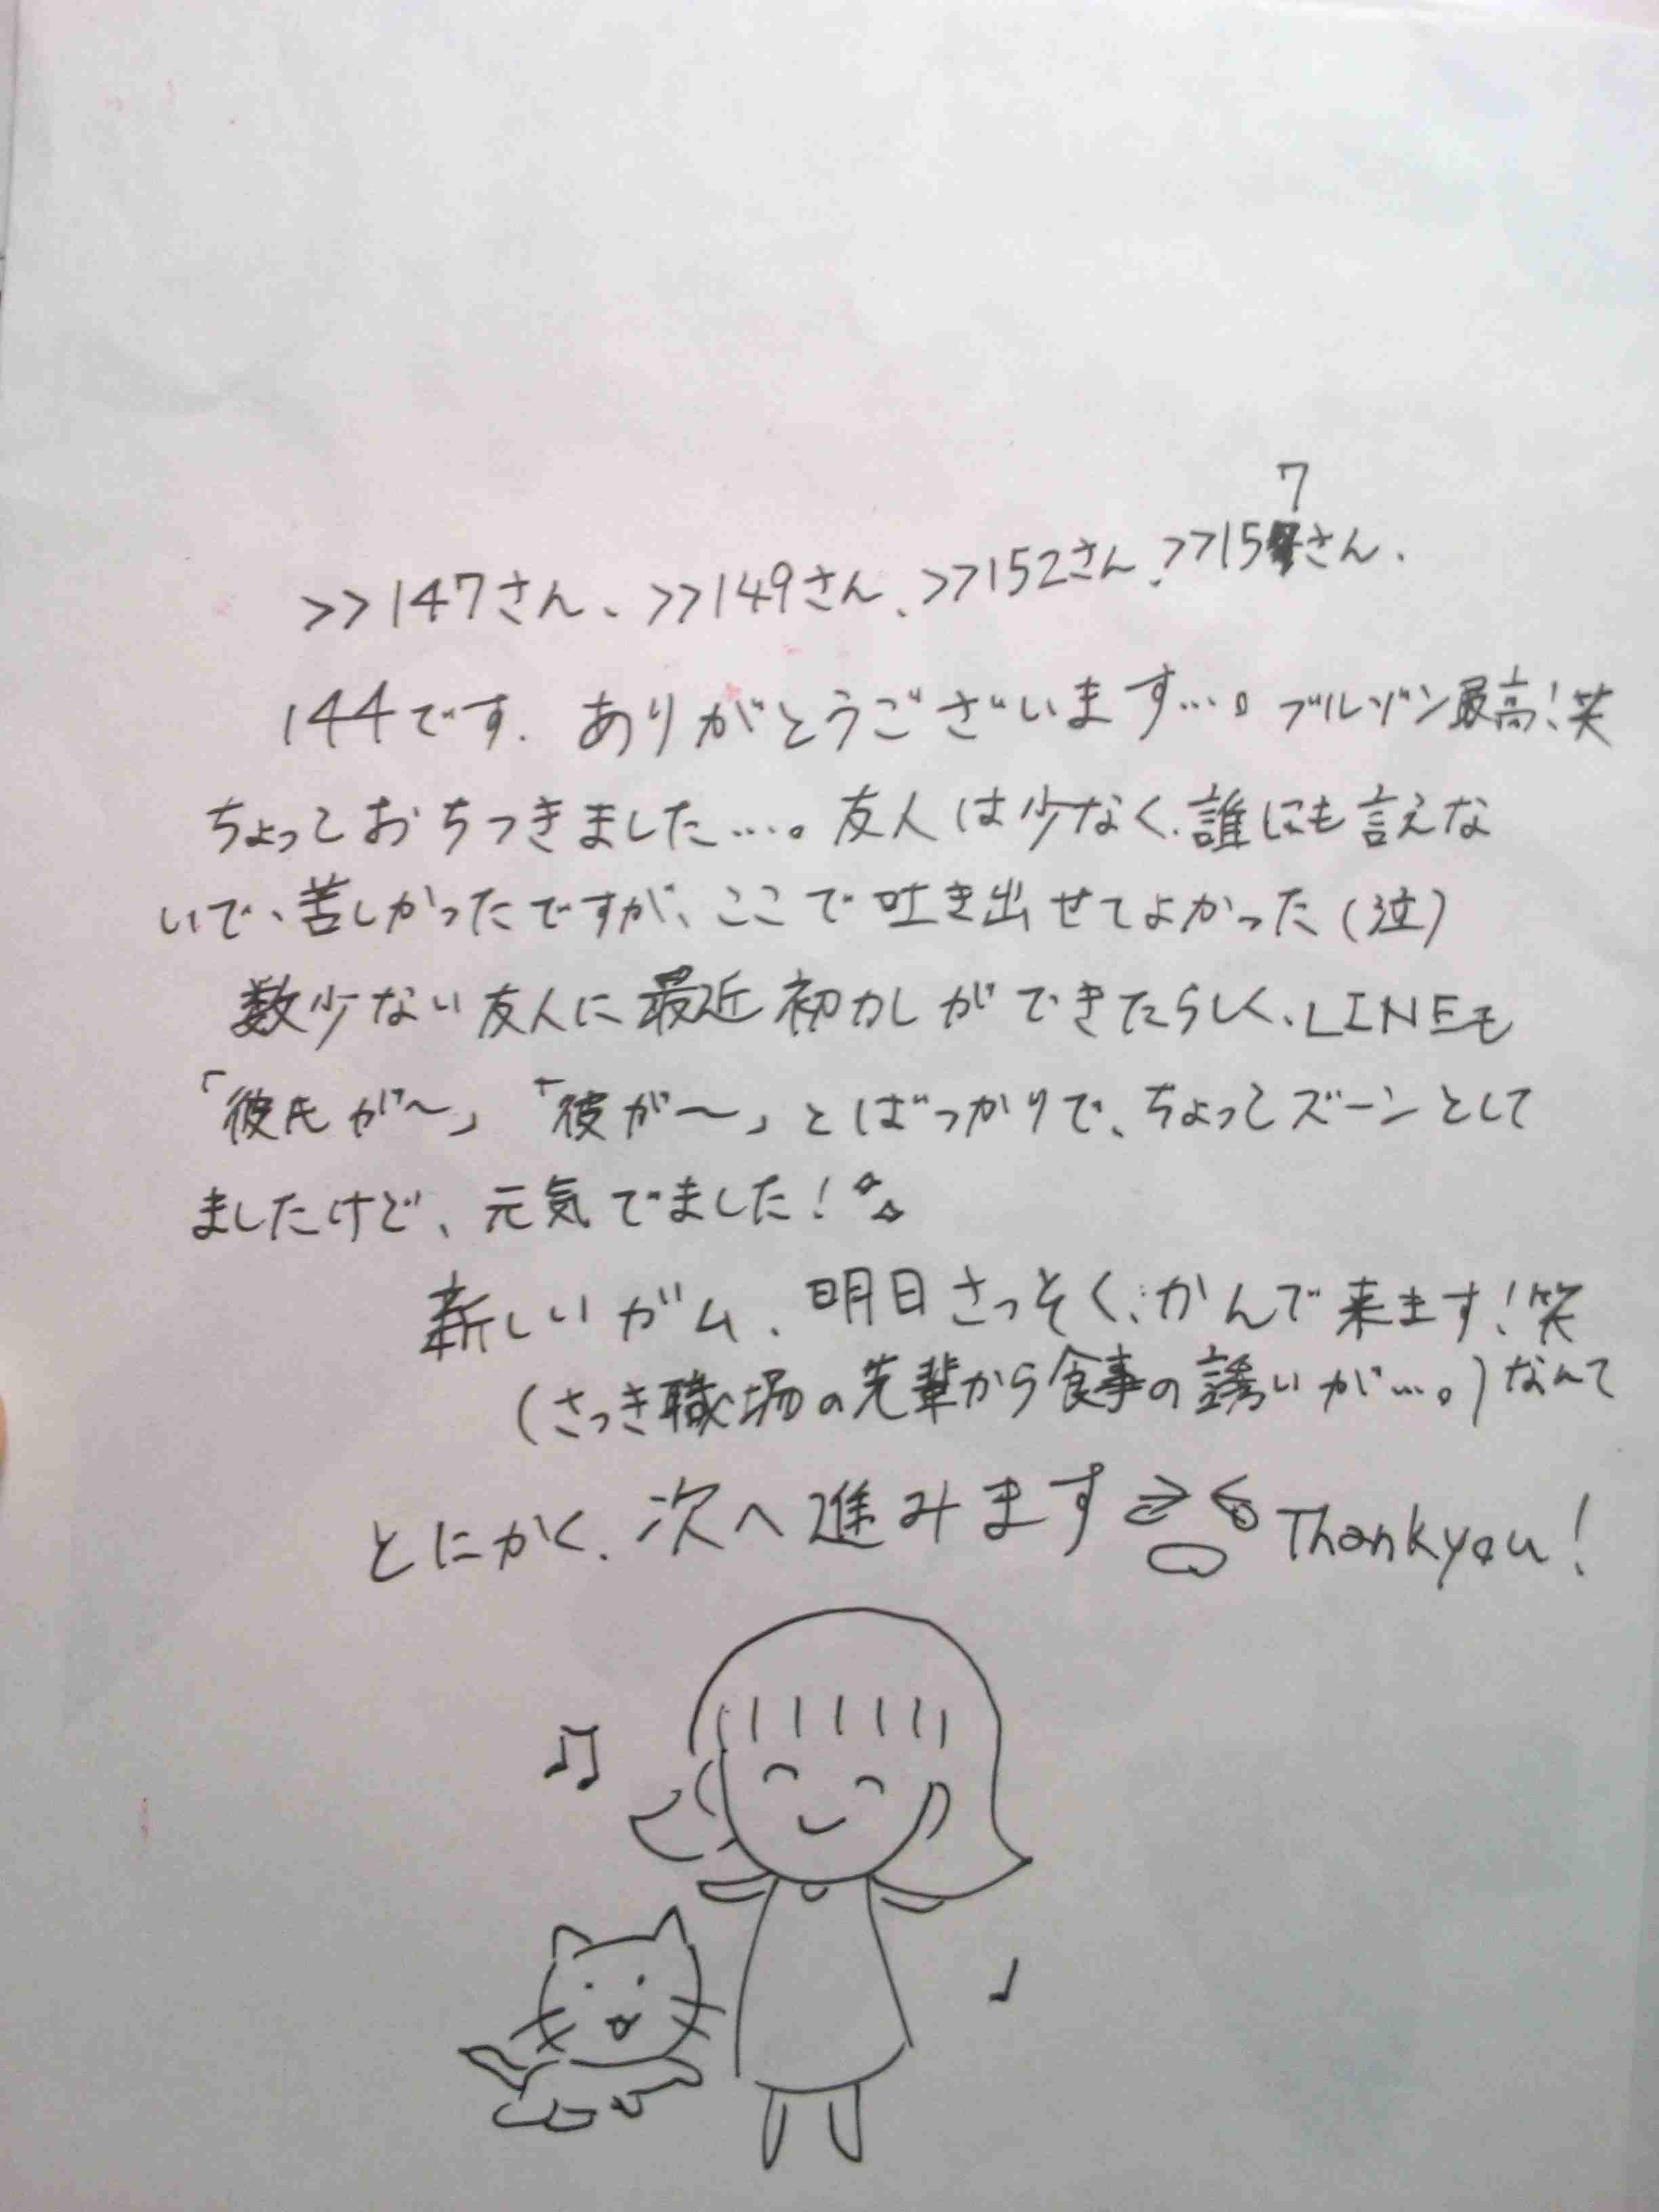 >>147さん、>>149さん、>>152さん、>>157さん、
144です。ありがとうございます…。ブルゾン最高!笑
ちょっとおちつきました…。友人は少なく、誰にも言えな
いで、苦しかったですが、ここで吐き出せてよかった(泣)
数少ない友人に最近初カレができたらしく、LINEも
「彼氏が〜」「彼が〜」とばっかりで、ちょっとズーンとして
ましたけど、元気でました!
新しいガム、明日さっそく、かんで来ます!笑
(さっき職場の先輩から食事の誘いが…。)なんて
とにかく、次へ進みます Thankyou!